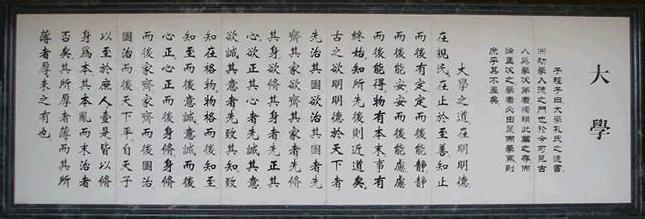 大學
子程子曰大學孔氏之遺書
而初學入德之門也於今可見古
人爲學次第者獨賴此篇之存而
論孟次之學者必由是而學焉則
庶乎其不差矣
大學之道在明明德
在親民在止於至善知止
而後有定定而後能靜靜
而後能安安而後能慮慮
而後能得物有本末事有
終始知所先後則近道矣
古之欲明明德於天下者
先治其國欲治其國者先
齊其家欲齊其家者先脩
其身欲脩其身者先正其
心欲正其心者先誠其意
欲誠其意者先致其知致
知在格物物格而後知至
知至而後意誠意誠而後
心正心正而後身脩身脩
而後家齊家齊而後國治
國治而後天下平自天子
以至於庶人壹是皆以脩
身爲本其本亂而末治者
否矣其所厚者薄而其所
薄者厚未之有也